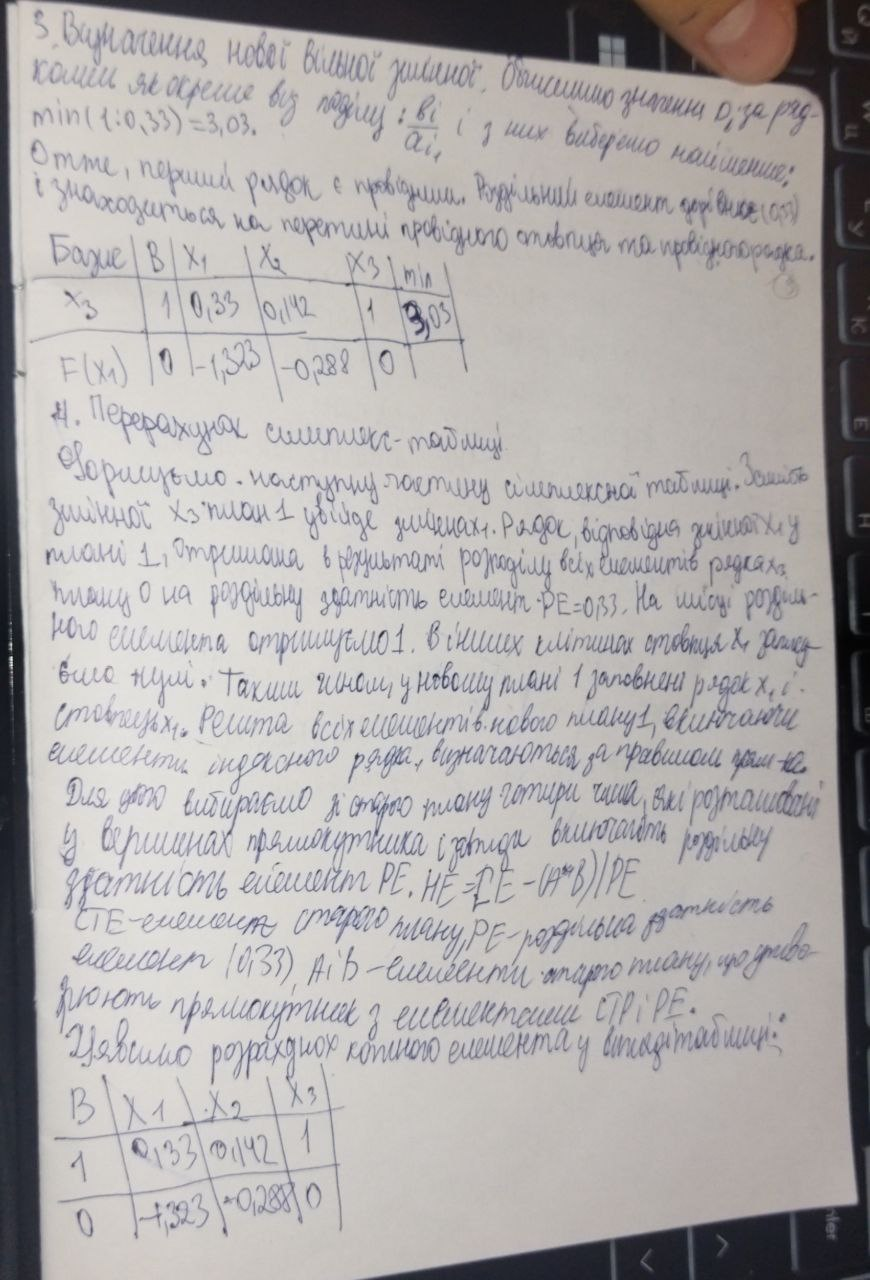 3. Визначення нової вільної змінної. Обчислимо значення Di за ряд-
ками як окреме від поділу: bi/ai1 і з них виберемо найменше:
min(1:0,33)=3,03.
Отже, перший рядок є провідним. Роздільний елемент дорівнює (0,33)
і знаходиться на перетині провідного стовпця та провідного рядка.
Базис B X1 X2 X3 min
X3 1 0,33 0,142 1 3,03
F(X1) 0 -1,323 -0,288 0
4. Перерахунок симплекс-таблиці
наступну частину сімплексної таблиці. Замість
змінної X3 план 1 увійде змінна x1. Рядок, відповідна змінної x1 у
плані 1, отримана в результаті розподілу всіх елементів рядка x3
плану 0 на роздільну здатність елемент РЕ=0,33. На місці розділь-
ного елемента отримуємо 1. В інших клітинах стовпця x1 запису-
ємо нулі. Таким чином, у новому плані 1 заповнені рядок x1 і
стовпець x1. Решта всіх елементів нового плану 1, включаючи
елементи індексного рядка, визначаються за правилом
Для цього вибираємо зі старого плану чотири числа, які розташовані
у вершинах прямокутника і завжди включають роздільну
здатність елемент РЕ. НЕ = -(A*B)/РЕ
СТЕ-елемент старого плану, РЕ-роздільна здатність
елемент (0,33), А і В-елементи старого плану, що утво-
рюють прямокутник з елементами СТР і РЕ.
Уявимо розрахунок кожного елемента у вигляді таблиці:
B X1 X2 X3
1 0,33 0,142 1
0 -1,323 -0,288 0